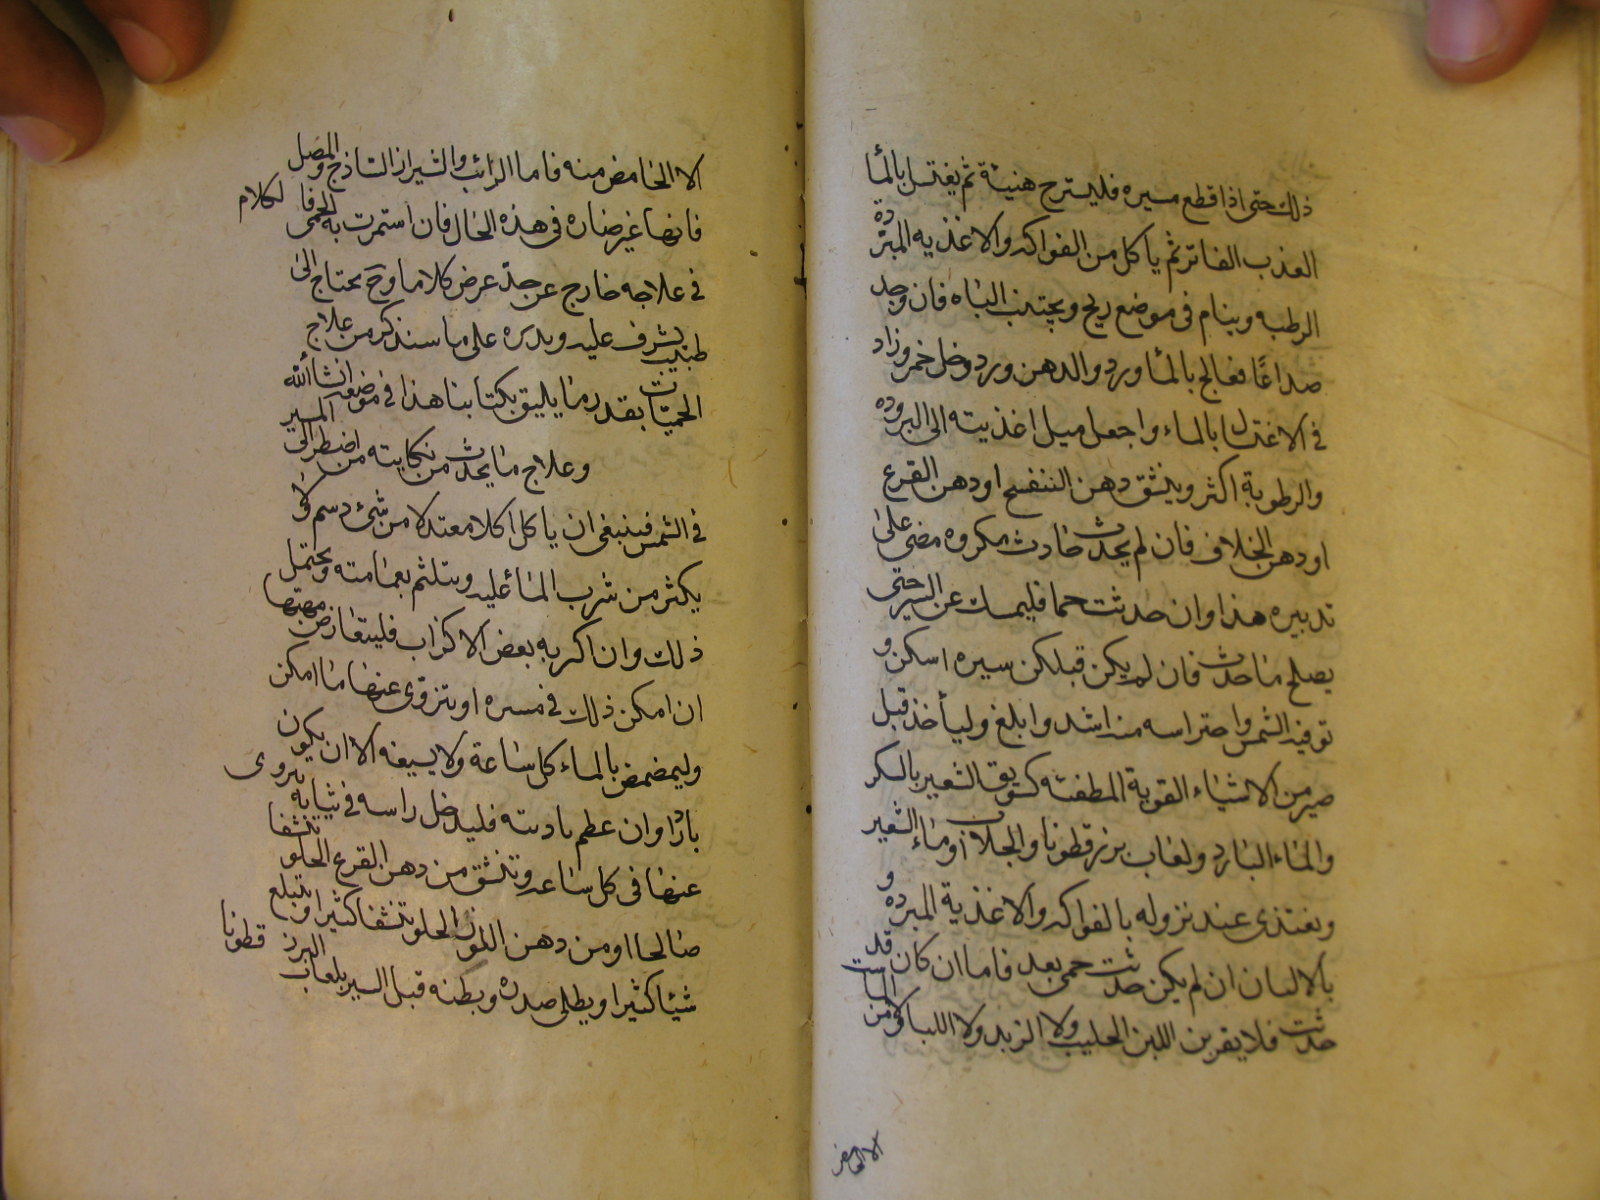 ذلك حتى اذا قطع مسيره فليسترح هنيئة ثم يغتسل بالمأ
العذب الفاتر ثم ياكل من الفواكه والاغذيه المبردة
الرطبه وينام فى موضع ريح ويجتنب الباه فان وجد
صداعًا فعالج بالمأ ورد والدهن ورد وخل خمر وزاد
فى الاغتسال بالماء واجعل ميل اغذيته الى البروده
والرطوبة اكثر وينشق دهن البنفسج او دهن القرع
او دهن الخلاف فان لم يحدث حادث مكروه مضى على
تدبيره هذا وان حدثت حما فليمسك عن السير حتى
يصلح ما حدث فان لم يكن قبلكن سيره اسكن و
توقيه الشمس واحتراسه منه اشد وابلغ وليأخذ قبل
من الاشياء القوية المطفئه كسويق الشعير بالسكر
والماء البارد ولعاب بزر قطونا والجلاب او ماء الشعير
ويغتذى عند نزوله بالفواكه والاغذية المبرده و
بالالبان ان لم يكن حدثت حمى بعد فاما ان كان قد
حدثت فلا يقربن اللبن الحليب ولا الزبد ولا اللبا ولا من الماست
الا الحامض
الا الحامض منه فاما الرائب والشيراز الساذج والمصل
فانها غير ضاره فى هذه الحال فان استمرت به الحمى فالكلام
فى علاجه خارج عن حد عرض كلاما وح يحتاج الى
طبيب يشرف عليه ويدبره على ما سنذكر من علاج
الحميات بقدر ما يليق بكتابنا هذا فى موضعه انشأ الله
وعلاج ما يحدث من نكايته من اضطر الى المسير
فى الشمس فينبغى ان ياكل اكلا معتدلا من شئ دسم ولا
يكثر من شرب المأ عليه ويتلثم بعمامته ويحتمل
ذلك وان اكربه بعض الاكراب فليتعارض مهبتها
ان امكن ذلك فى مسيره او يتزوى عنها ما امكن
وليمضمض بالماء كل ساعة ولا يسيغه الا ان يكون
باردا وان عظم باديته فليدخل راسه فى ثيابه يتروى
عنها فى كل ساعه وتنشق من دهن القرع الحلو تنشفا
صالحا او من دهن اللوز الحلو تنشفا كثيرا او يتبلع
شيئا كثيرا ويطلى صدره وبطنه قبل السير بلعاب البزر قطونا